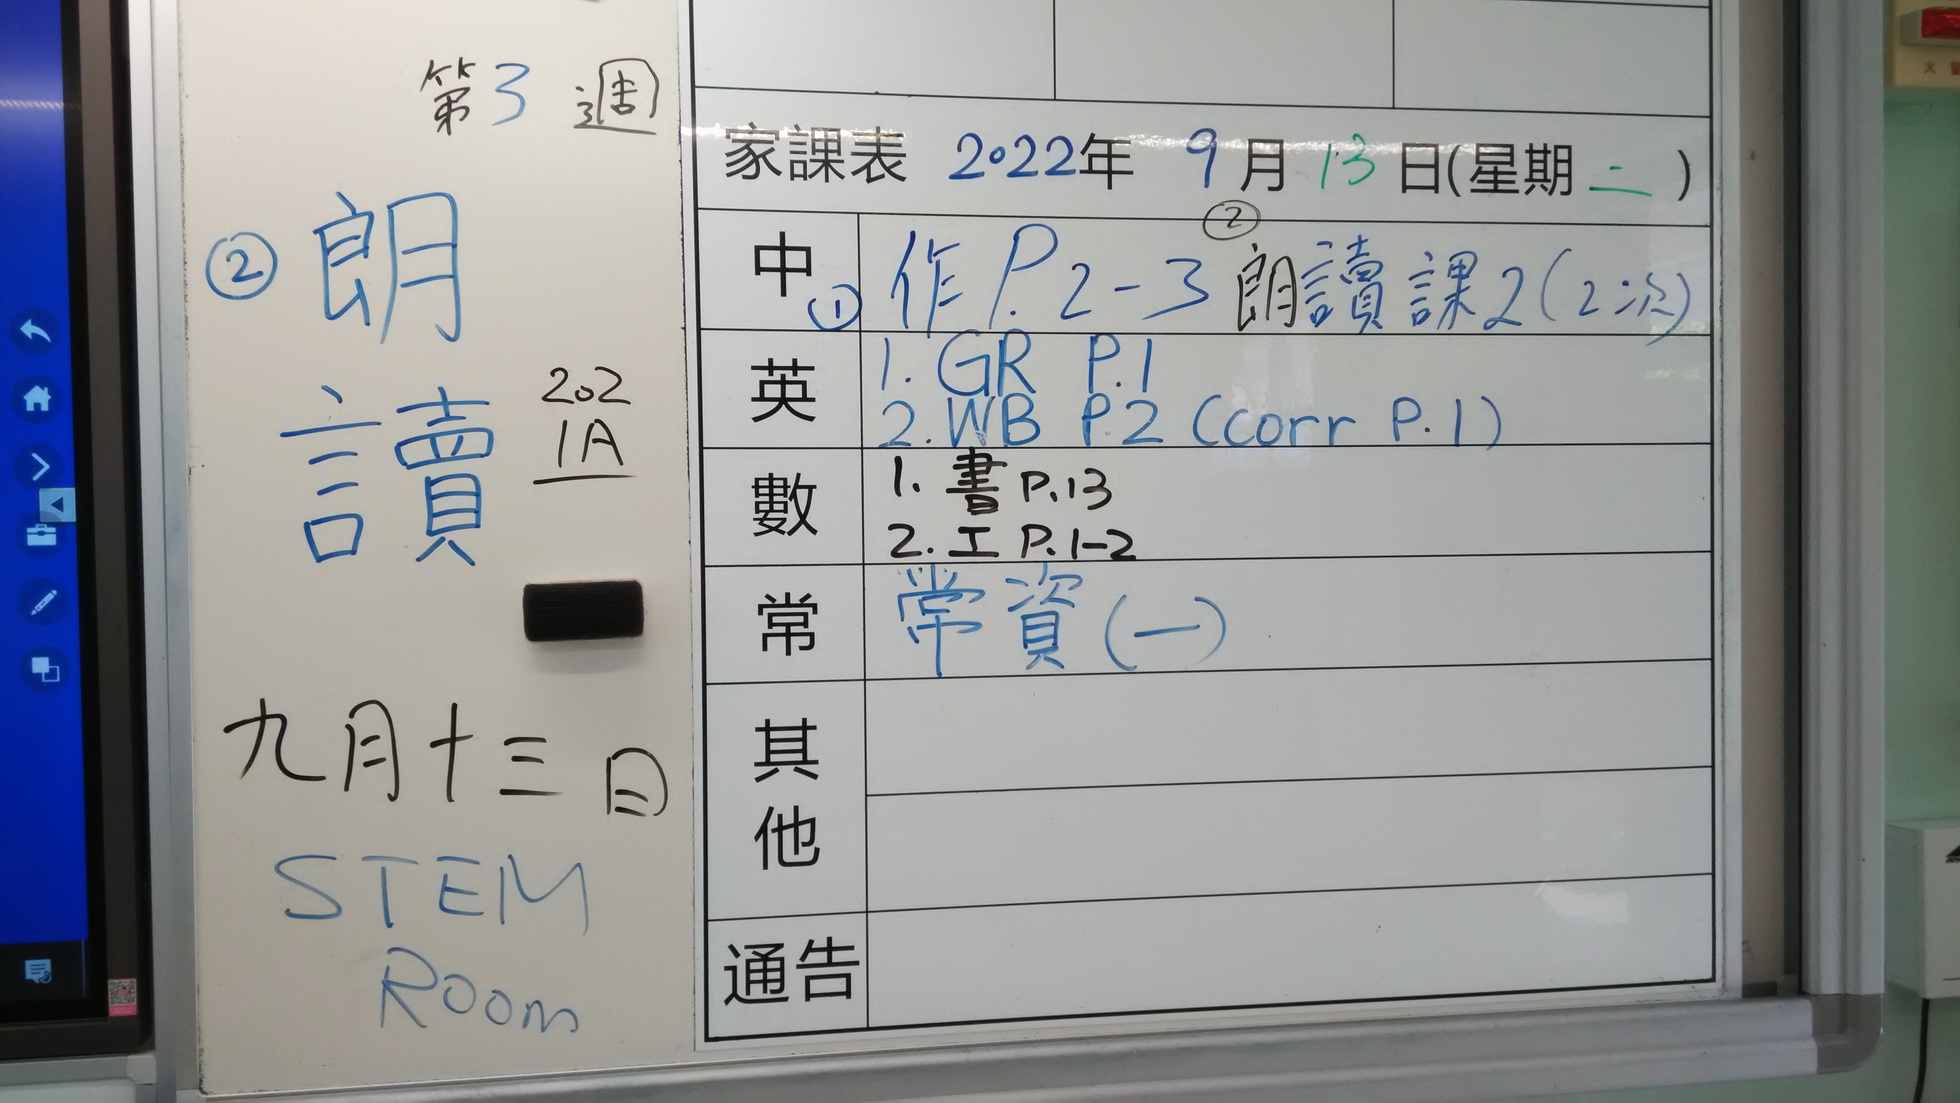 第3週
② 朗
讀
202
1A
九月十三日
STEM
Room
家課表 2022年 9月13日(星期二)
中 ① 作P.2-3 ② 朗讀課2(2次)
英 1. GR P.1
2. WB P.2 (corr P.1)
數 1. 書 P.13
2. 工 P.1-2
常 常資(一)
其他
通告